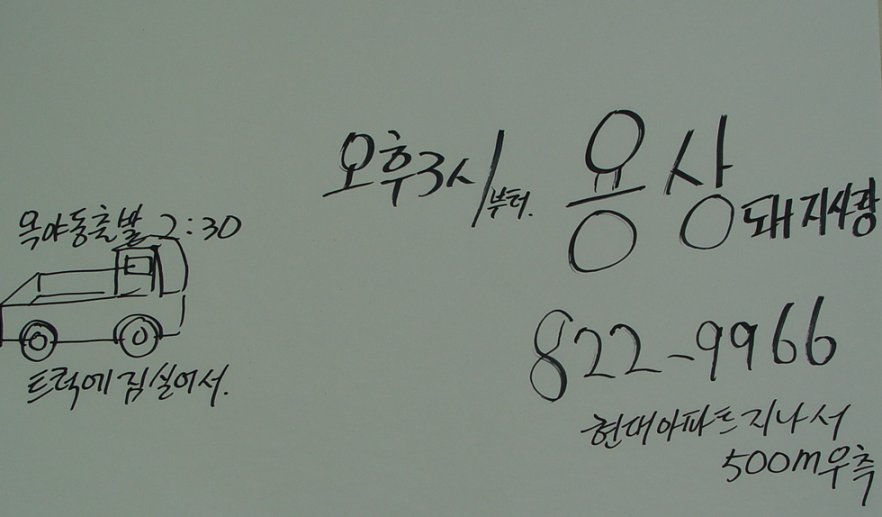 오후3시부터.
용상
돼지사랑
옥야동출발 2:30
트럭에 짐 실어서.
822-9966
현대아파트 지나서
500m 우측